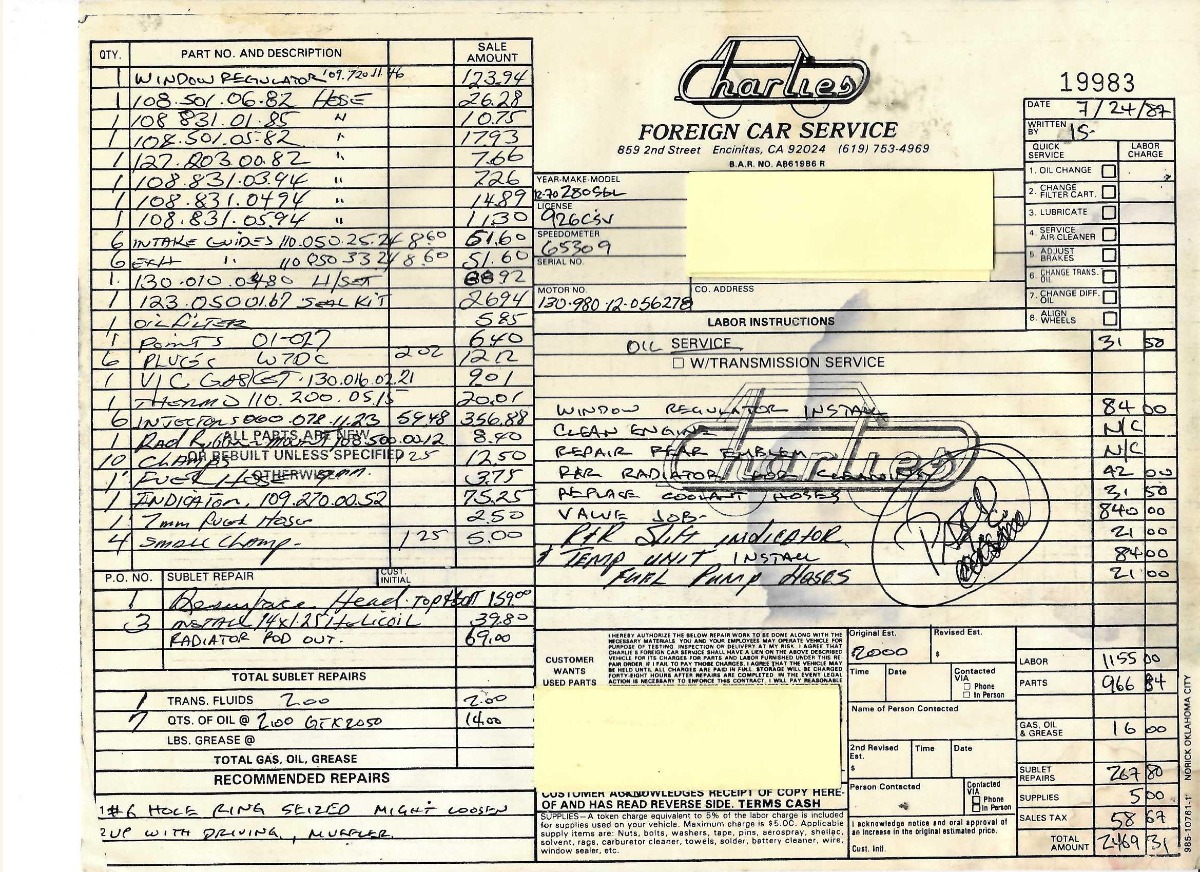 QTY. PART NO. AND DESCRIPTION SALE AMOUNT
1 WINDOW REGULATOR 109.720.11.46 173.94
1 108.501.06.82 HOSE 26.28
1 108 831.01.85 " 10.75
1 108.501.05.82 " 1793
1 127.203 00.82 " 7.66
1 108.831.03.94 " 726
1 108.831.0494 " 14.89
1 108.831.0594 " 11.30
6 INTAKE GUIDES 110.050.25.24 8.60 51.60
6 EXH " 110 050 33 24 8.60 51.60
1 130.010.0480 H/SET 92
1 123.050 01.67 SEAL KIT 2694
1 OIL FILTER 585
1 POINTS 01-027 640
6 PLUGS W7DC 202 12.12
1 V/C GASKET.130.016.02.21 901
1 THERMO 110.200.05.15 20.01
6 INJECTORS 000.078.11.23 59.48 356.88
1 Rad Rubber 108.500.0012 8.40
ALL PARTS ARE NEW
OR REBUILT UNLESS SPECIFIED
OTHERWISE
10 CLAMPS 125 12.50
1 FUEL HOSE 3.75
1 INDICATOR. 109.270.00.52 75.25
1 7mm Fuel Hose 2.50
4 Small Clamp. 1 25 5.00
P.O. NO. SUBLET REPAIR CUST. INITIAL
1 Resurface Head. TOP & BOTT 159.00
3 INSTALL 14x1.25 Helicoil 39.80
RADIATOR ROD OUT. 69.00
TOTAL SUBLET REPAIRS
1 TRANS. FLUIDS 2.00 2.00
7 QTS. OF OIL @ 2.00 GTX2050 14.00
LBS. GREASE @
TOTAL GAS, OIL, GREASE
RECOMMENDED REPAIRS
1 #6 HOLE RING SEIZED MIGHT LOOSEN
2 UP WITH DRIVING, MUFFLER.
Charlies
FOREIGN CAR SERVICE
859 2nd Street Encinitas, CA 92024 (619) 753-4969
B.A.R. NO. AB61986 R
YEAR-MAKE-MODEL
12-70 280SEL
LICENSE
926CSV
SPEEDOMETER
65309
SERIAL NO.
MOTOR NO.
130.980.12.056278
CO. ADDRESS
19983
DATE 7/24/87
WRITTEN BY 15-
QUICK SERVICE LABOR CHARGE
1. OIL CHANGE
2. CHANGE FILTER CART.
3. LUBRICATE
4. SERVICE AIR CLEANER
5. ADJUST BRAKES
6. CHANGE TRANS. OIL
7. CHANGE DIFF. OIL
8. ALIGN WHEELS
LABOR INSTRUCTIONS
OIL SERVICE 31 50
W/TRANSMISSION SERVICE
Charlies
WINDOW REGULATOR INSTALL 84 00
CLEAN ENGINE N/C
REPAIR REAR EMBLEM N/C
R&R RADIATOR FOR CLEANING 42 00
REPLACE COOLANT HOSES 31 50
VALVE JOB- 840 00
R&R Shift INDICATOR 21 00
TEMP UNIT INSTALL 84 00
FUEL PUMP HOSES 21 00
PAID
CUSTOMER WANTS USED PARTS
I HEREBY AUTHORIZE THE BELOW REPAIR WORK TO BE DONE ALONG WITH THE
NECESSARY MATERIALS YOU AND YOUR EMPLOYEES MAY OPERATE VEHICLE FOR
PURPOSE OF TESTING INSPECTION OR DELIVERY AT MY RISK. I AGREE THAT
CHARLIE'S FOREIGN CAR SERVICE SHALL HAVE A LIEN ON THE ABOVE DESCRIBED
VEHICLE FOR ITS CHARGES FOR PARTS AND LABOR FURNISHED UNDER THIS RE
PAIR ORDER IF I FAIL TO PAY THOSE CHARGES, I AGREE THAT THE VEHICLE MAY
BE HELD UNTIL ALL CHARGES ARE PAID IN FULL. STORAGE WILL BE CHARGED
FORTY-EIGHT HOURS AFTER REPAIRS ARE COMPLETED IN THE EVENT LEGAL
ACTION IS NECESSARY TO ENFORCE THIS CONTRACT. I WILL PAY REASONABLE
CUSTOMER ACKNOWLEDGES RECEIPT OF COPY HERE-
OF AND HAS READ REVERSE SIDE. TERMS CASH
SUPPLIES—A token charge equivalent to 5% of the labor charge is included
for supplies used on your vehicle. Maximum charge is $5.00. Applicable
supply items are: Nuts, bolts, washers, tape, pins, aerospray, shellac,
solvent, rags, carburetor cleaner, towels, solder, battery cleaner, wire,
window sealer, etc.
Original Est. 2000 Revised Est. $
Time Date Contacted VIA Phone In Person
Name of Person Contacted
2nd Revised Est. $ Time Date
Person Contacted Contacted VIA Phone In Person
I acknowledge notice and oral approval of
an increase in the original estimated price.
Cust. Intl.
LABOR 1155 00
PARTS 966 84
GAS, OIL & GREASE 16 00
SUBLET REPAIRS 267 80
SUPPLIES 5 00
SALES TAX 58 67
TOTAL AMOUNT 2469 31
985-10761-1 NORICK OKLAHOMA CITY